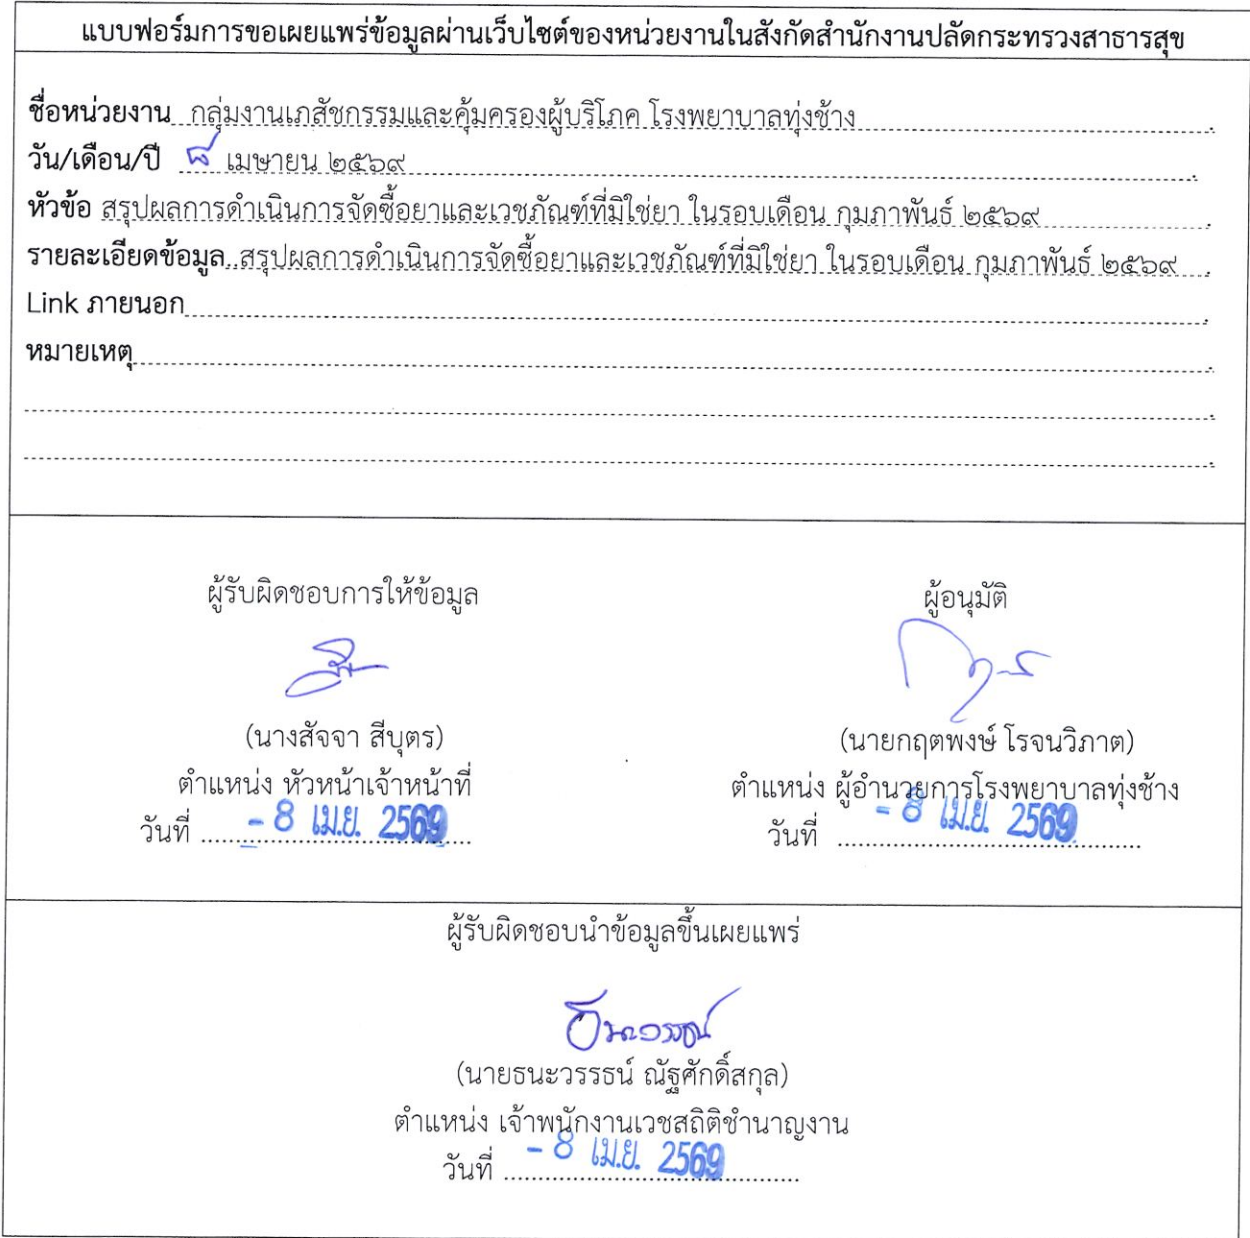 แบบฟอร์มการขอเผยแพร่ข้อมูลผ่านเว็บไซต์ของหน่วยงานในสังกัดสำนักงานปลัดกระทรวงสาธารสุข
ชื่อหน่วยงาน กลุ่มงานเภสัชกรรมและคุ้มครองผู้บริโภค โรงพยาบาลทุ่งช้าง
วัน/เดือน/ปี ๘ เมษายน ๒๕๖๙
หัวข้อ สรุปผลการดำเนินการจัดซื้อยาและเวชภัณฑ์ที่มิใช่ยา ในรอบเดือน กุมภาพันธ์ ๒๕๖๙
รายละเอียดข้อมูล สรุปผลการดำเนินการจัดซื้อยาและเวชภัณฑ์ที่มิใช่ยา ในรอบเดือน กุมภาพันธ์ ๒๕๖๙
Link ภายนอก
หมายเหตุ
ผู้รับผิดชอบการให้ข้อมูล
(นางสัจจา สีบุตร)
ตำแหน่ง หัวหน้าเจ้าหน้าที่
วันที่ - 8 เม.ย. 2569
ผู้อนุมัติ
(นายกฤตพงษ์ โรจนวิภาต)
ตำแหน่ง ผู้อำนวยการโรงพยาบาลทุ่งช้าง
วันที่ - 8 เม.ย. 2569
ผู้รับผิดชอบนำข้อมูลขึ้นเผยแพร่
ธนะวรรธน์
(นายธนะวรรธน์ ณัฐศักดิ์สกุล)
ตำแหน่ง เจ้าพนักงานเวชสถิติชำนาญงาน
วันที่ - 8 เม.ย. 2569